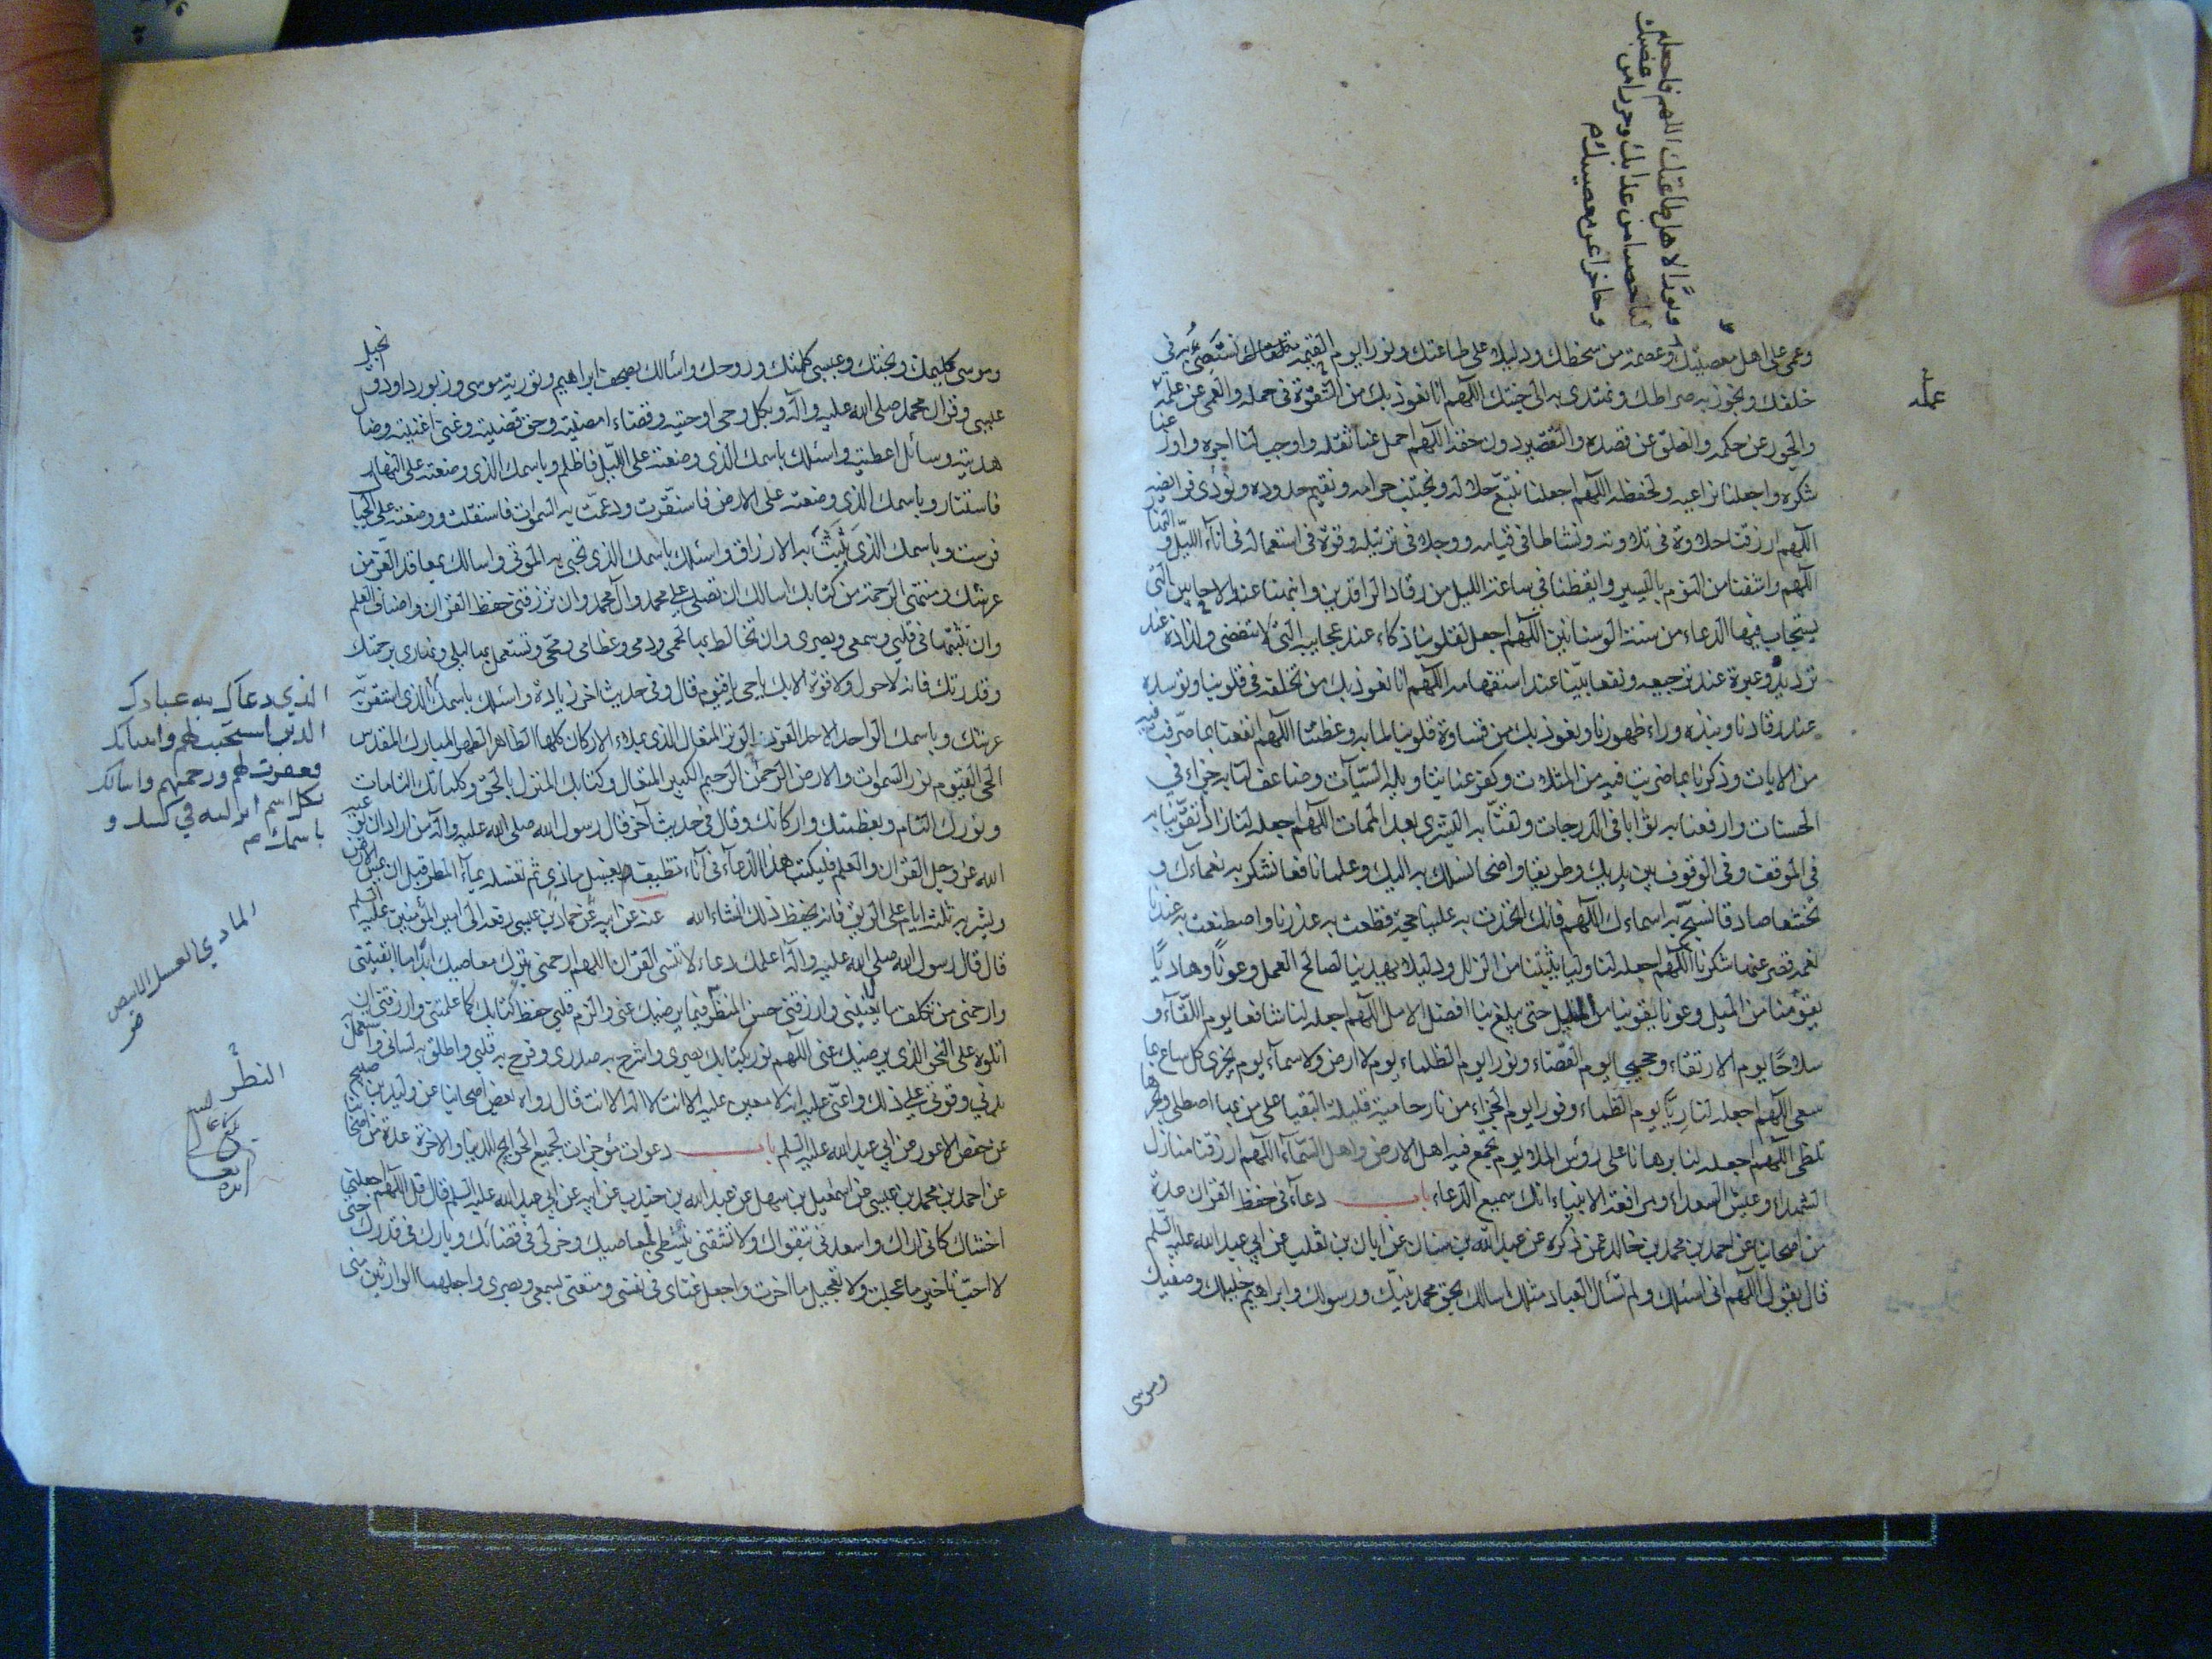 وعمى على اهل معصيتك وعصمة من سخطك ودليلا على طاعتك ونورا يوم القيمة نستضئ به في
خلقك ونجوز به صراطك ونهتدى به الى جنتك اللهم انا نعوذ بك من الشقوة في حمله والعمى عن علمه
والجور عن حكمه والعلو عن قصده والتقصير دون حقه اللهم احمل عنا ثقله واوجب لنا اجره واوزعنا
شكره واجعلنا نراعيه ونحفظه اللهم اجعلنا نتبع حلاله ونجتنب حرامه ونقيم حدوده ونؤدى فرائضه
اللهم ارزقنا حلاوة في تلاوته ونشاطا في قيامه ووجلا في ترتيله وقوة في استعماله في اناء الليل و
اللهم واشفنا من النوم باليسير وايقظنا في ساعة الليل من رقاد الراقدين وانبهنا عند الاحايين التى
يستجاب فيها الدعاء من سنة الوسنانين اللهم اجعل لقلوبنا ذكاء عند عجايبه التى لا تنقضى ولذاذة عند
ترديده وعبرة عند ترجيعه ونفعا بينا عند استفهامه اللهم انا نعوذ بك من تخلفه في قلوبنا وتوسده
عند رقادنا ونبذه وراء ظهورنا ونعوذ بك من قساوة قلوبنا لما به وعظتنا اللهم انفعنا بما صرفت فيه
من الايات وذكرنا بما ضربت فيه من المثلات وكفر عنا بتاويله السيآت وضاعف لنا به جزاء في
الحسنات وارفعنا به ثوابا في الدرجات ولقنا به البشرى بعد الممات اللهم اجعله لنا زادا تقوينا به
في الموقف وفى الوقوف بين يديك وطريقا واضحا نسلك به اليك وعلما نافعا نشكر به نعماءك و
تخشعا صادقا نسبح به اسماءك اللهم فانك اتخذت به علينا حجة قطعت به عذرنا واصطنعت به عندنا
نعمة قصر عنها شكرنا اللهم اجعله لنا وليا يثبتنا من الزلل ودليلا يهدينا لصالح العمل وعونا وهاديا
يقومنا من الميل وعونا يقوينا من الملل حتى يبلغ بنا افضل الامل اللهم اجعله لنا شافعا يوم اللقآء و
سلاحا يوم الارتقاء وحجيجا يوم القضاء ونورا يوم الظلماء يوم لا ارض ولا سمآء يوم يجزى كل ساع بما
سعى اللهم اجعله لنا ريا يوم الظماء وفوزا يوم الجزاء من نار حامية قليلة البقيا على من بها اصطلى وبحرها
تلظى اللهم اجعله لنا برهانا على رؤس الملاء يوم يجمع فيه اهل الارض واهل السمآء اللهم ارزقنا منازل
الشهداء وعيش السعداء ومرافقة الانبياء انك سميع الدعاء باب دعآء في حفظ القران عدة
من اصحابنا عن احمد بن محمد بن خالد عمن ذكره عن عبد الله بن سنان عن ابان بن تغلب عن ابي عبد الله عليه السلم
قال يقول اللهم انى اسئلك ولم تسأل العباد مثلك اسالك بحق محمد نبيك ورسولك وابراهيم خليلك وصفيك
ونورا لاهل طاعتك اللهم فاجعله
لنا حصنا من عذابك وحرزا من غضبك
وحاجزا عن معصيتك م
عمله
وموسى
وموسى كليمك ونجيك وعيسى كلمتك وروحك واسألك بصحف ابراهيم وتورية موسى وزبور داود وانجيل
عيسى وقران محمد صلى الله عليه وآله وبكل وحى اوحيته وقضاء امضيته وحق قضيته وغنى اغنيته وضال
هديته وسائل اعطيته واسئلك باسمك الذى وضعته على الليل فاظلم وباسمك الذى وضعته على النهار
فاستنار وباسمك الذى وضعته على الارض فاستقرت ودعمت به السموات فاستقلت ووضعته على الجبال
فرست وباسمك الذى بثثت به الارزاق واسئلك باسمك الذى تحيى به الموتى واسالك بمعاقد العز من
عرشك ومنتهى الرحمة من كتابك اسالك ان تصلى على محمد وآل محمد وان ترزقنى حفظ القران واصناف العلم
وان تثبتها في قلبي وسمعى وبصرى وان تخالط بها لحمى ودمى وعظامى ومخى وتستعمل بها ليلى ونهارى برحمتك
وقدرتك فانه لا حول ولا قوة الا بك ياحى ياقيوم قال وفى حديث اخر زيادة واسئلك باسمك الذى استقر به
عرشك وباسمك الواحد الاحد الفرد الوتر المتعال الذى يملاء الاركان كلها الطاهر الطهر المبارك المقدس
الحى القيوم نور السموات والارض الرحمن الرحيم الكبير المتعال وكتابك المنزل بالحق وكلماتك التامات
ونورك التام وبعظمتك واركانك وقال في حديث آخر قال رسول الله صلى الله عليه وآله من اراد ان يوعيه
الله عز وجل القران والعلم فليكتب هذا الدعآء في آناء نظيف بعسل ماذى ثم تغسله بمآء المطر قبل ان يمس الارض
ويشربه ثلثة ايام على الريق فانه يحفظ ذلك انشاء الله عنه عن ابيه عن حماد بن عيسى رفعه الى امير المؤمنين عليه السلم
قال قال رسول الله صلى الله عليه وآله اعلمك دعاء لا تنسى القران اللهم ارحمنى بترك معاصيك ابدا ما ابقيتنى
وارحمنى من تكلف ما لا يعنينى وارزقنى حسن المنظر فيما يرضيك عنى والزم قلبى حفظ كتابك كما علمتنى وارزقنى ان
اتلوه على النحو الذى يرضيك عنى اللهم نور بكتابك بصرى واشرح به صدرى وفرح به قلبى واطلق به لسانى واستعمل به
بدنى وقونى على ذلك واعنى عليه انه لا معين عليه الا انت لا اله الا انت قال رواه بعض اصحابنا عن وليد بن صبيح
عن حفص الاعور عن ابي عبد الله عليه السلم باب دعوات موجزات لجميع الحوائج للدنيا والاخرة عدة من اصحابنا
عن احمد بن محمد بن عيسى عن اسمعيل بن سهل عن عبد الله بن جندب عن ابيه عن ابي عبد الله عليه السلم قال قل اللهم اجعلنى
اخشاك كانى اراك واسعدنى بتقواك ولا تشقنى بنشطى لمعاصيك وخر لى في قضائك وبارك في قدرك حتى
لا احب تاخير ما عجلت ولا تعجيل ما اخرت واجعل غناى في نفسى ومتعنى بسمعى وبصرى واجعلهما الوارثين منى
الذي دعاك به عبادك
الذين استجبت لهم وانبيائك
فغفرت لهم ورحمتهم واسالك
بكل اسم انزلته في كتبك و
باسمك م
الماذي العسل الابيض
ص
النظر